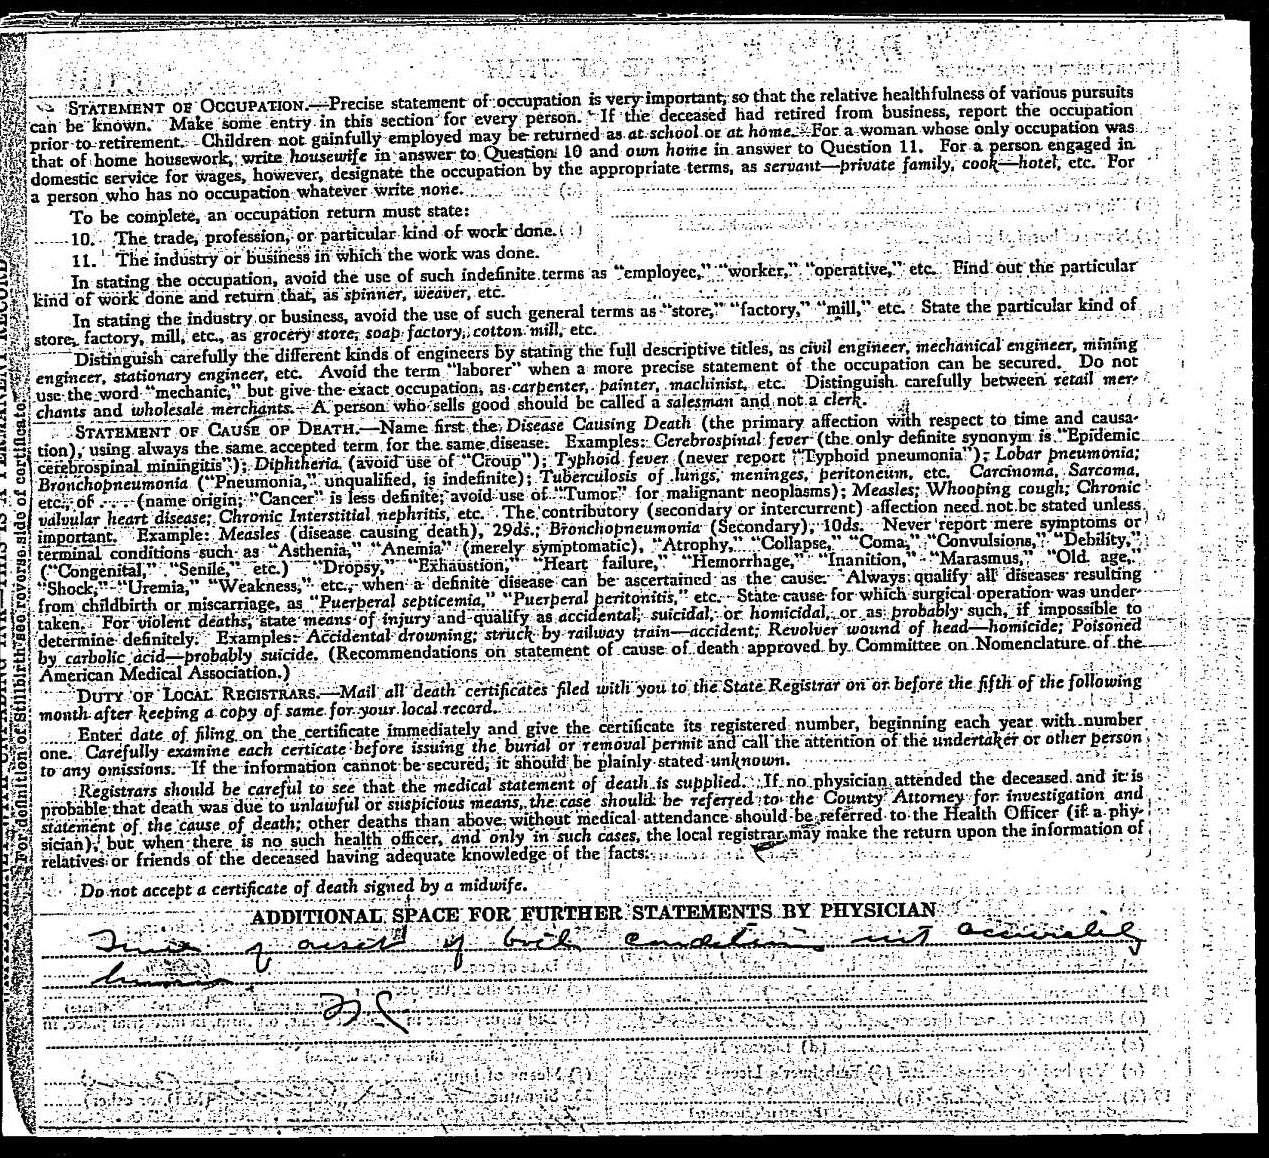 STATEMENT OF OCCUPATION.—Precise statement of occupation is very important, so that the relative healthfulness of various pursuits
can be known. Make some entry in this section for every person. If the deceased had retired from business, report the occupation
prior to retirement. Children not gainfully employed may be returned as at school or at home. For a woman whose only occupation was
that of home housework, write housewife in answer to Question 10 and own home in answer to Question 11. For a person engaged in
domestic service for wages, however, designate the occupation by the appropriate terms, as servant—private family, cook—hotel, etc. For
a person who has no occupation whatever write none.
To be complete, an occupation return must state:
10. The trade, profession, or particular kind of work done.
11. The industry or business in which the work was done.
In stating the occupation, avoid the use of such indefinite terms as "employee," "worker," "operative," etc. Find out the particular
kind of work done and return that, as spinner, weaver, etc.
In stating the industry or business, avoid the use of such general terms as "store," "factory," "mill," etc. State the particular kind of
store, factory, mill, etc., as grocery store, soap factory, cotton mill, etc.
Distinguish carefully the different kinds of engineers by stating the full descriptive titles, as civil engineer, mechanical engineer, mining
engineer, stationary engineer, etc. Avoid the term "laborer" when a more precise statement of the occupation can be secured. Do not
use the word "mechanic," but give the exact occupation, as carpenter, painter, machinist, etc. Distinguish carefully between retail mer-
chants and wholesale merchants. A person who sells good should be called a salesman and not a clerk.
STATEMENT OF CAUSE OF DEATH.—Name first the Disease Causing Death (the primary affection with respect to time and causa-
tion), using always the same accepted term for the same disease. Examples: Cerebrospinal fever (the only definite synonym is "Epidemic
cerebrospinal miningitis"); Diphtheria (avoid use of "Croup"); Typhoid fever (never report "Typhoid pneumonia"); Lobar pneumonia;
Bronchopneumonia ("Pneumonia," unqualified, is indefinite); Tuberculosis of lungs, meninges, peritoneum, etc. Carcinoma, Sarcoma,
etc., of .... (name origin; "Cancer" is less definite; avoid use of "Tumor" for malignant neoplasms); Measles; Whooping cough; Chronic
valvular heart disease; Chronic Interstitial nephritis, etc. The contributory (secondary or intercurrent) affection need not be stated unless
important. Example: Measles (disease causing death), 29ds.; Bronchopneumonia (Secondary), 10ds. Never report mere symptoms or
terminal conditions such as "Asthenia," "Anemia" (merely symptomatic), "Atrophy," "Collapse," "Coma," "Convulsions," "Debility,"
("Congenital," "Senile," etc.) "Dropsy," "Exhaustion," "Heart failure," "Hemorrhage," "Inanition," "Marasmus," "Old age,"
"Shock," "Uremia," "Weakness," etc., when a definite disease can be ascertained as the cause. Always qualify all diseases resulting
from childbirth or miscarriage, as "Puerperal septicemia," "Puerperal peritonitis," etc. State cause for which surgical operation was under-
taken. For violent deaths, state means of injury and qualify as accidental, suicidal, or homicidal, or as probably such, if impossible to
determine definitely. Examples: Accidental drowning; struck by railway train—accident; Revolver wound of head—homicide; Poisoned
by carbolic acid—probably suicide. (Recommendations on statement of cause of death approved by Committee on Nomenclature of the
American Medical Association.)
DUTY OF LOCAL REGISTRARS.—Mail all death certificates filed with you to the State Registrar on or before the fifth of the following
month after keeping a copy of same for your local record.
Enter date of filing on the certificate immediately and give the certificate its registered number, beginning each year with number
one. Carefully examine each certicate before issuing the burial or removal permit and call the attention of the undertaker or other person
to any omissions. If the information cannot be secured, it should be plainly stated unknown.
Registrars should be careful to see that the medical statement of death is supplied. If no physician attended the deceased and it is
probable that death was due to unlawful or suspicious means, the case should be referred to the County Attorney for investigation and
statement of the cause of death; other deaths than above without medical attendance should be referred to the Health Officer (if a phy-
sician), but when there is no such health officer, and only in such cases, the local registrar may make the return upon the information of
relatives or friends of the deceased having adequate knowledge of the facts.
Do not accept a certificate of death signed by a midwife.
ADDITIONAL SPACE FOR FURTHER STATEMENTS BY PHYSICIAN
Time of onset of both conditions not accurately
known.
For definition of Stillbirth see reverse side of certificate